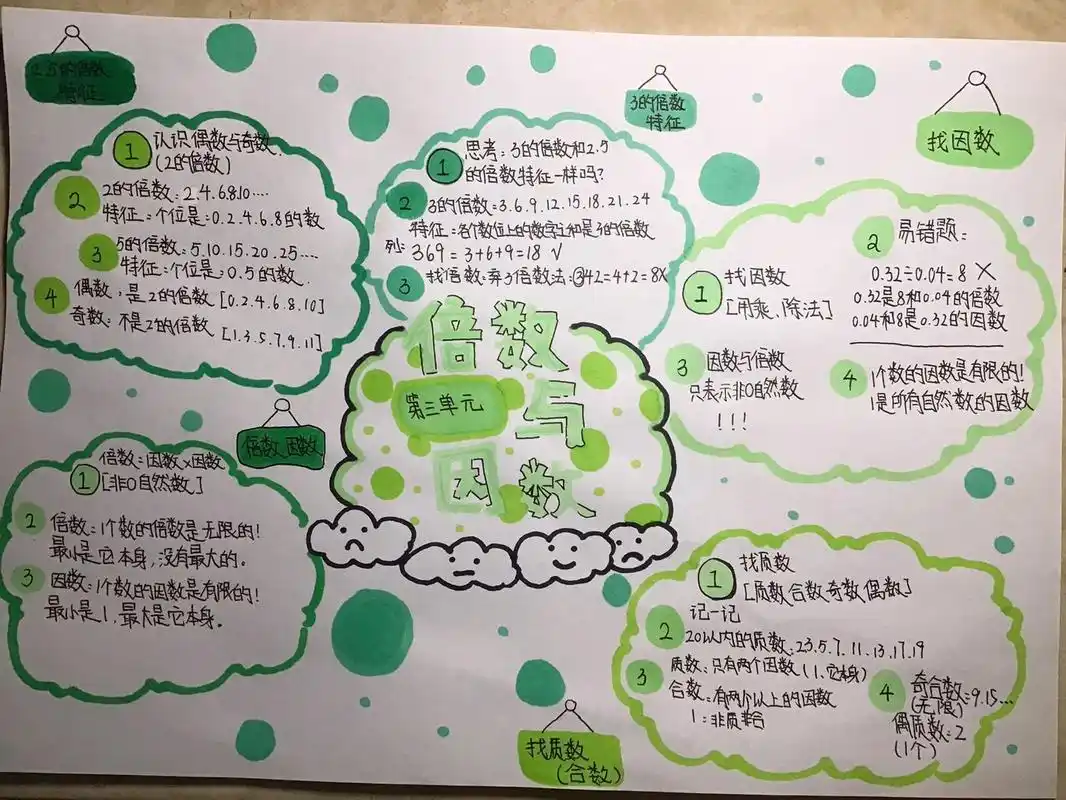 2.5的倍数
特征
① 认识偶数与奇数.
(2的倍数)
2 2的倍数:2.4.6.8.10····
特征:个位是:0.2.4.6.8的数
3 5的倍数:5.10.15.20.25····
特征:个位是:0.5的数.
4 偶数,是2的倍数[0.2.4.6.8.10]
奇数:不是2的倍数[1.3.5.7.9.11]
3的倍数
特征
① 思考:3的倍数和2.5
的倍数特征一样吗?
2 3的倍数=3.6.9.12.15.18.21.24
特征:各个数位上的数字之和是3的倍数
列:369=3+6+9=18 √
3 找倍数:弃3倍数法:③42=4+2=8X
找因数
① 找因数
[用乘、除法]
2 易错题:
0.32÷0.04=8 ×
0.32是8和0.04的倍数
0.04和8是0.32的因数
3 因数与倍数
只表示非0自然数
!!!
4 1个数的因数是有限的!
1是所有自然数的因数
倍数
与
因数
第三单元
倍数 因数
① 倍数=因数×因数
[非0自然数]
2 倍数:1个数的倍数是无限的!
最小是它本身,没有最大的。
3 因数:1个数的因数是有限的!
最小是1,最大是它本身。
找质数
(合数)
① 找质数
[质数合数奇数偶数]
2 记一记
20以内的质数:2.3.5.7.11.13.17.19
3 质数:只有两个因数(1、它本身)
合数:有两个以上的因数
1:非质非合
4 奇合数=9.15...
(无限)
偶质数:2
(1个)